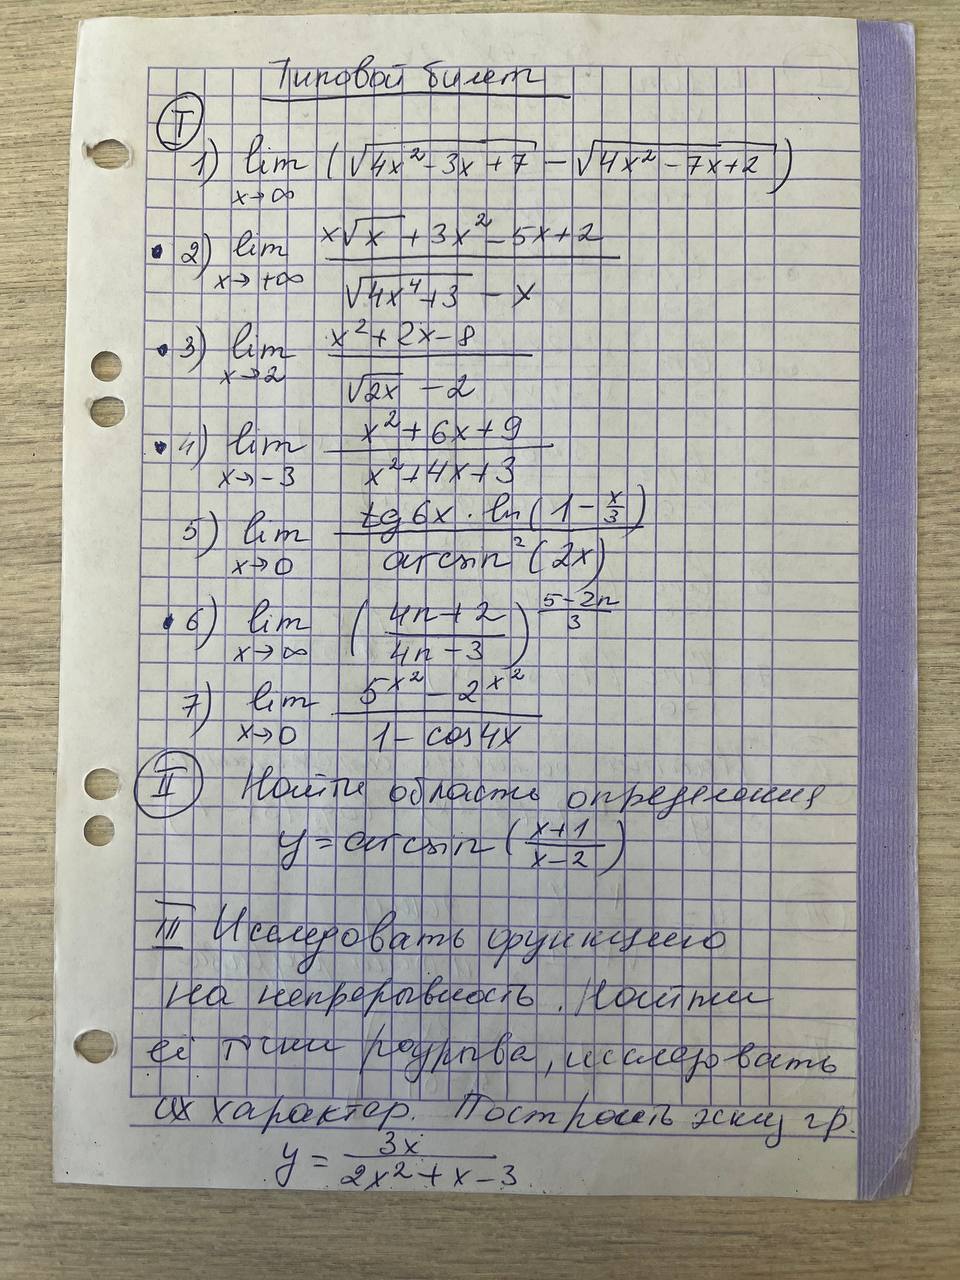 Типовой билет
I
1) lim x→∞ (√(4x²-3x+7) - √(4x²-7x+2))
• 2) lim x→+∞ (x√x + 3x² - 5x + 2) / (√(4x⁴+3) - x)
• 3) lim x→2 (x²+2x-8) / (√(2x) - 2)
• 4) lim x→-3 (x²+6x+9) / (x²+4x+3)
5) lim x→0 (tg 6x · ln(1 - x/3)) / (arcsin²(2x))
• 6) lim x→∞ ((4n+2) / (4n-3))^((5-2n)/3)
7) lim x→0 (5^(x²) - 2^(x²)) / (1 - cos4x)
II Найти область определения
y = arcsin((x+1)/(x-2))
III Исследовать функцию
на непрерывность. Найти
её точки разрыва, исследовать
их характер. Построить эскиз гр.
y = 3x / (2x²+x-3)